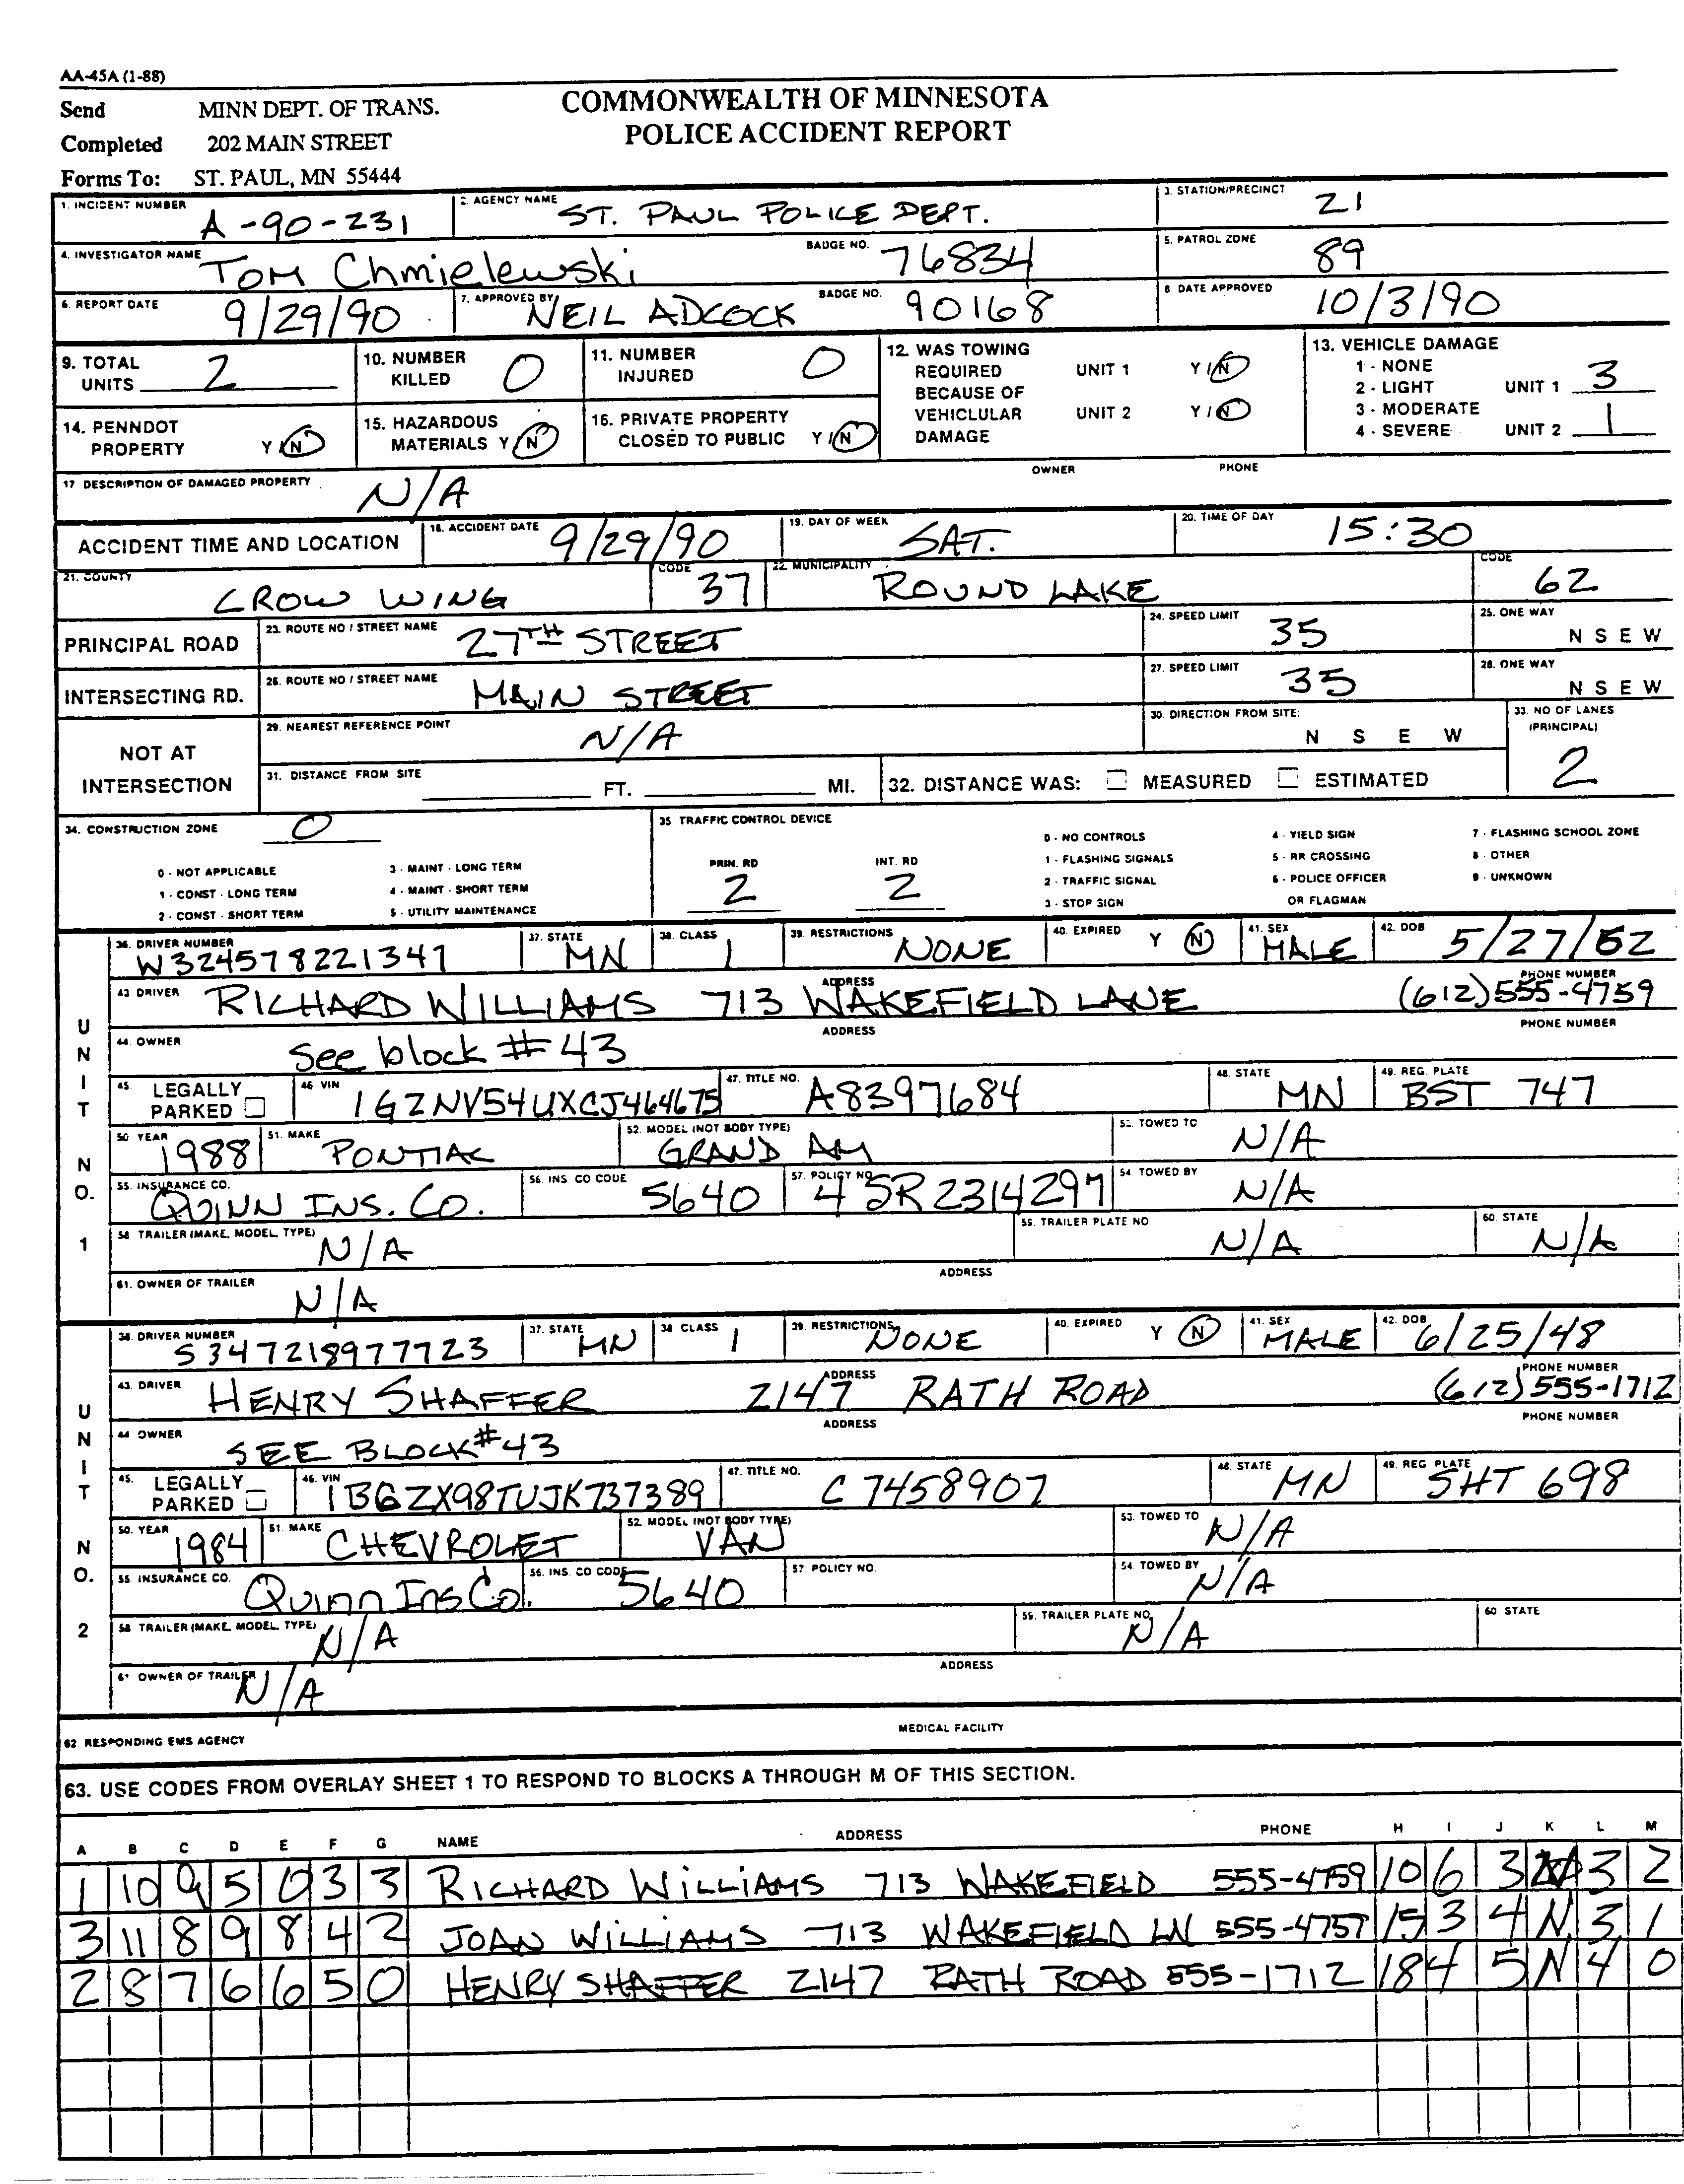 AA-45A (1-88)
Send MINN DEPT. OF TRANS. COMMONWEALTH OF MINNESOTA
Completed 202 MAIN STREET POLICE ACCIDENT REPORT
Forms To: ST. PAUL, MN 55444
1. INCIDENT NUMBER A-90-231 2. AGENCY NAME ST. PAUL POLICE DEPT. 3. STATION/PRECINCT 21
4. INVESTIGATOR NAME TOM Chmielewski BADGE NO. 76834 5. PATROL ZONE 89
6. REPORT DATE 9/29/90 7. APPROVED BY NEIL ADCOCK BADGE NO. 90168 8 DATE APPROVED 10/3/90
9. TOTAL UNITS 2 10. NUMBER KILLED 0 11. NUMBER INJURED 0 12. WAS TOWING REQUIRED BECAUSE OF VEHICLULAR DAMAGE UNIT 1 Y / N UNIT 2 Y / N 13. VEHICLE DAMAGE
1 - NONE
2 - LIGHT UNIT 1 3
3 - MODERATE
4 - SEVERE UNIT 2 1
14. PENNDOT PROPERTY Y / N 15. HAZARDOUS MATERIALS Y / N 16. PRIVATE PROPERTY CLOSED TO PUBLIC Y / N
17 DESCRIPTION OF DAMAGED PROPERTY N/A OWNER PHONE
ACCIDENT TIME AND LOCATION 18. ACCIDENT DATE 9/29/90 19. DAY OF WEEK SAT. 20. TIME OF DAY 15:30
21. COUNTY CROW WING CODE 37 22. MUNICIPALITY ROUND LAKE CODE 62
PRINCIPAL ROAD 23. ROUTE NO / STREET NAME 27TH STREET 24. SPEED LIMIT 35 25. ONE WAY N S E W
INTERSECTING RD. 26. ROUTE NO / STREET NAME MAIN STREET 27. SPEED LIMIT 35 28. ONE WAY N S E W
NOT AT INTERSECTION 29. NEAREST REFERENCE POINT N/A 30. DIRECTION FROM SITE: N S E W 33. NO OF LANES (PRINCIPAL) 2
31. DISTANCE FROM SITE FT. MI. 32. DISTANCE WAS: MEASURED ESTIMATED
34. CONSTRUCTION ZONE 0
0 - NOT APPLICABLE 3 - MAINT - LONG TERM
1 - CONST - LONG TERM 4 - MAINT - SHORT TERM
2 - CONST - SHORT TERM 5 - UTILITY MAINTENANCE
35. TRAFFIC CONTROL DEVICE
PRIN. RD 2 INT. RD 2
0 - NO CONTROLS 4 - YIELD SIGN 7 - FLASHING SCHOOL ZONE
1 - FLASHING SIGNALS 5 - RR CROSSING 8 - OTHER
2 - TRAFFIC SIGNAL 6 - POLICE OFFICER 9 - UNKNOWN
3 - STOP SIGN OR FLAGMAN
UNIT NO. 1
36. DRIVER NUMBER W324578221347 37. STATE MN 38. CLASS 1 39. RESTRICTIONS NONE 40. EXPIRED Y N 41. SEX MALE 42. DOB 5/27/52
43 DRIVER RICHARD WILLIAMS ADDRESS 713 WAKEFIELD LANE PHONE NUMBER (612)555-4759
44. OWNER See block #43 ADDRESS PHONE NUMBER
45. LEGALLY PARKED 46 VIN 1GZNV54UXCJ464675 47. TITLE NO. A8397684 48. STATE MN 49. REG. PLATE BST 747
50 YEAR 1988 51. MAKE PONTIAC 52. MODEL (NOT BODY TYPE) GRAND AM 53. TOWED TO N/A
55. INSURANCE CO. QUINN INS. CO. 56 INS. CO CODE 5640 57. POLICY NO. 4 SR2314297 54 TOWED BY N/A
58 TRAILER (MAKE, MODEL, TYPE) N/A 59. TRAILER PLATE NO N/A 60 STATE N/A
61. OWNER OF TRAILER N/A ADDRESS
UNIT NO. 2
36. DRIVER NUMBER S347218977723 37. STATE MN 38 CLASS 1 39. RESTRICTIONS NONE 40. EXPIRED Y N 41. SEX MALE 42. DOB 6/25/48
43. DRIVER HENRY SHAFFER ADDRESS 2147 RATH ROAD PHONE NUMBER (612)555-1712
44 OWNER SEE BLOCK #43 ADDRESS PHONE NUMBER
45. LEGALLY PARKED 46. VIN 1BGZX98TUJK737389 47. TITLE NO. C7458907 48. STATE MN 49. REG PLATE SHT 698
50. YEAR 1984 51. MAKE CHEVROLET 52. MODEL (NOT BODY TYPE) VAN 53. TOWED TO N/A
55. INSURANCE CO. Quinn Ins Co. 56. INS. CO CODE 5640 57 POLICY NO. 54. TOWED BY N/A
58 TRAILER (MAKE, MODEL, TYPE) N/A 59. TRAILER PLATE NO. N/A 60. STATE
61 OWNER OF TRAILER N/A ADDRESS
62 RESPONDING EMS AGENCY MEDICAL FACILITY
63. USE CODES FROM OVERLAY SHEET 1 TO RESPOND TO BLOCKS A THROUGH M OF THIS SECTION.
A B C D E F G NAME ADDRESS PHONE H I J K L M
1 10 9 5 0 3 3 RICHARD WILLIAMS 713 WAKEFIELD 555-4759 10 6 3 3 2
3 11 8 9 8 4 2 JOAN WILLIAMS 713 WAKEFIELD LN 555-4759 15 3 4 N 3 1
2 8 7 6 6 5 0 HENRY SHAFFER 2147 RATH ROAD 555-1712 18 4 5 N 4 0